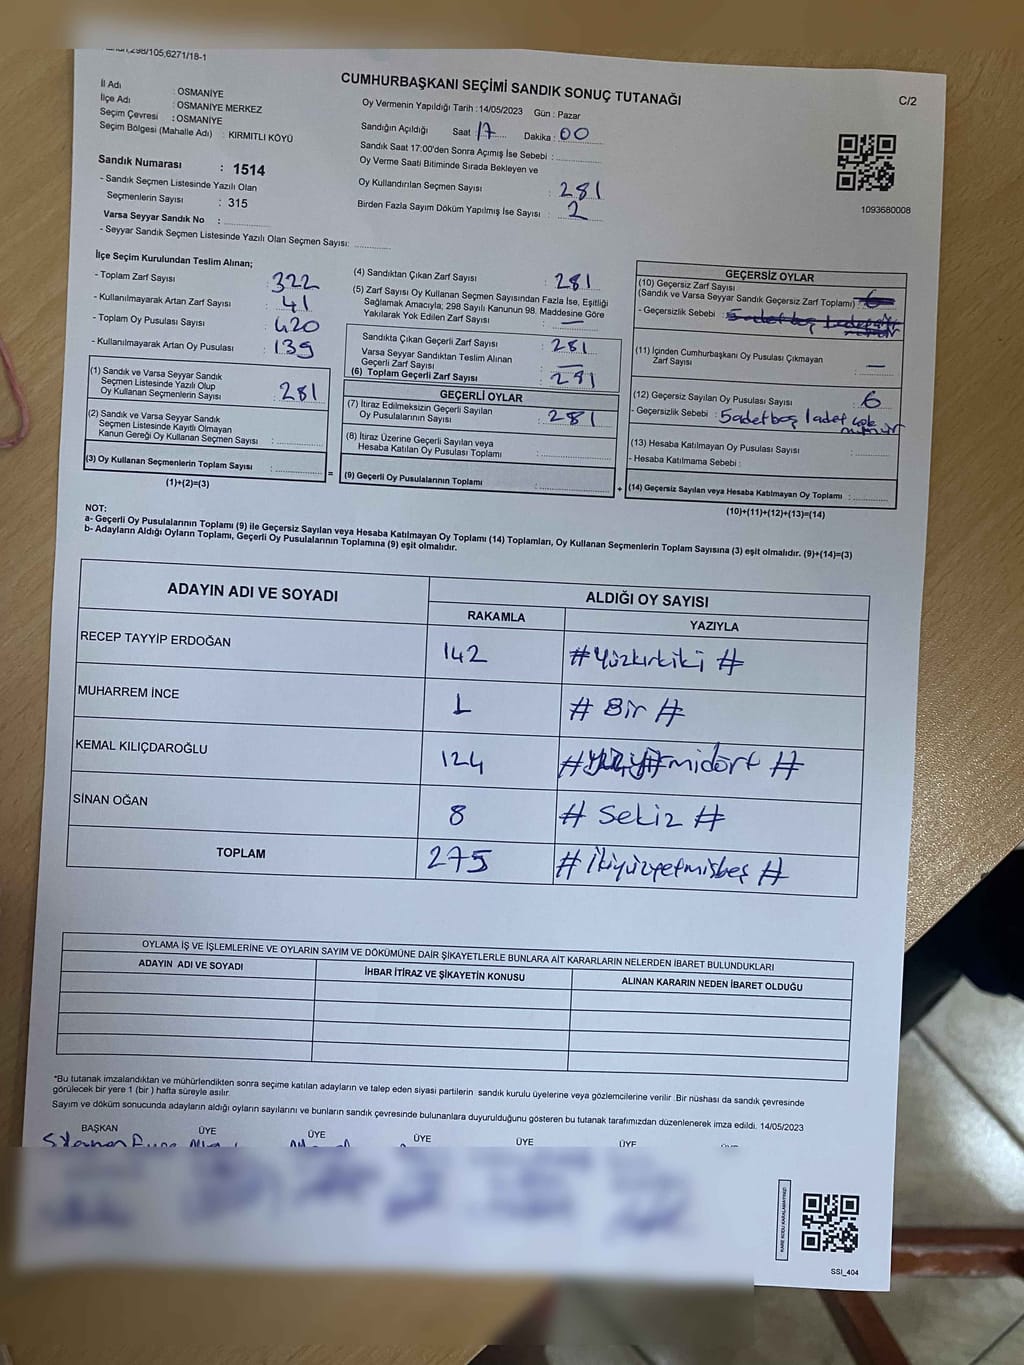 298/105;6271/18-1
CUMHURBAŞKANI SEÇİMİ SANDIK SONUÇ TUTANAĞI
C/2
İl Adı : OSMANİYE
İlçe Adı : OSMANİYE MERKEZ
Seçim Çevresi : OSMANİYE
Seçim Bölgesi (Mahalle Adı) : KIRMITLI KÖYÜ
Sandık Numarası : 1514
- Sandık Seçmen Listesinde Yazılı Olan
Seçmenlerin Sayısı : 315
Varsa Seyyar Sandık No :
- Seyyar Sandık Seçmen Listesinde Yazılı Olan Seçmen Sayısı:
Oy Vermenin Yapıldığı Tarih : 14/05/2023 Gün : Pazar
Sandığın Açıldığı Saat 17 Dakika : 00
Sandık Saat 17:00'den Sonra Açımış İse Sebebi :
Oy Verme Saati Bitiminde Sırada Bekleyen ve
Oy Kullandırılan Seçmen Sayısı : 281
Birden Fazla Sayım Döküm Yapılmış İse Sayısı : 2
1093680008
İlçe Seçim Kurulundan Teslim Alınan;
- Toplam Zarf Sayısı : 322
- Kullanılmayarak Artan Zarf Sayısı : 41
- Toplam Oy Pusulası Sayısı : 420
- Kullanılmayarak Artan Oy Pusulası : 139
(1) Sandık ve Varsa Seyyar Sandık
Seçmen Listesinde Yazılı Olup
Oy Kullanan Seçmenlerin Sayısı : 281
(2) Sandık ve Varsa Seyyar Sandık
Seçmen Listesinde Kayıtlı Olmayan
Kanun Gereği Oy Kullanan Seçmen Sayısı :
(3) Oy Kullanan Seçmenlerin Toplam Sayısı :
(1)+(2)=(3)
=
(4) Sandıktan Çıkan Zarf Sayısı : 281
(5) Zarf Sayısı Oy Kullanan Seçmen Sayısından Fazla İse, Eşitliği
Sağlamak Amacıyla; 298 Sayılı Kanunun 98. Maddesine Göre
Yakılarak Yok Edilen Zarf Sayısı : —
Sandıkta Çıkan Geçerli Zarf Sayısı : 281
Varsa Seyyar Sandıktan Teslim Alınan
Geçerli Zarf Sayısı : —
(6) Toplam Geçerli Zarf Sayısı : 281
GEÇERLİ OYLAR
(7) İtiraz Edilmeksizin Geçerli Sayılan
Oy Pusulalarının Sayısı : 281
(8) İtiraz Üzerine Geçerli Sayılan veya
Hesaba Katılan Oy Pusulası Toplamı :
(9) Geçerli Oy Pusulalarının Toplamı :
+
GEÇERSİZ OYLAR
(10) Geçersiz Zarf Sayısı
(Sandık ve Varsa Seyyar Sandık Geçersiz Zarf Toplamı)
- Geçersizlik Sebebi :
(11) İçinden Cumhurbaşkanı Oy Pusulası Çıkmayan
Zarf Sayısı : —
(12) Geçersiz Sayılan Oy Pusulası Sayısı : 6
- Geçersizlik Sebebi : 5adet boş 1adet çok mühür
(13) Hesaba Katılmayan Oy Pusulası Sayısı :
- Hesaba Katılmama Sebebi :
(14) Geçersiz Sayılan veya Hesaba Katılmayan Oy Toplamı :
(10)+(11)+(12)+(13)=(14)
NOT:
a- Geçerli Oy Pusulalarının Toplamı (9) ile Geçersiz Sayılan veya Hesaba Katılmayan Oy Toplamı (14) Toplamları, Oy Kullanan Seçmenlerin Toplam Sayısına (3) eşit olmalıdır. (9)+(14)=(3)
b- Adayların Aldığı Oyların Toplamı, Geçerli Oy Pusulalarının Toplamına (9) eşit olmalıdır.
ADAYIN ADI VE SOYADI ALDIĞI OY SAYISI
RAKAMLA YAZIYLA
RECEP TAYYİP ERDOĞAN 142 #Yüzkırkiki #
MUHARREM İNCE 1 # Bir #
KEMAL KILIÇDAROĞLU 124 #yüzyirmidört #
SİNAN OĞAN 8 # Sekiz #
TOPLAM 275 #İkiyüzyetmişbeş #
OYLAMA İŞ VE İŞLEMLERİNE VE OYLARIN SAYIM VE DÖKÜMÜNE DAİR ŞİKAYETLERLE BUNLARA AİT KARARLARIN NELERDEN İBARET BULUNDUKLARI
ADAYIN ADI VE SOYADI İHBAR İTİRAZ VE ŞİKAYETİN KONUSU ALINAN KARARIN NEDEN İBARET OLDUĞU
*Bu tutanak imzalandıktan ve mühürlendikten sonra seçime katılan adayların ve talep eden siyasi partilerin sandık kurulu üyelerine veya gözlemcilerine verilir .Bir nüshası da sandık çevresinde
görülecek bir yere 1 (bir ) hafta süreyle asılır.
Sayım ve döküm sonucunda adayların aldığı oyların sayılarını ve bunların sandık çevresinde bulunanlara duyurulduğunu gösteren bu tutanak tarafımızdan düzenlenerek imza edildi. 14/05/2023
BAŞKAN ÜYE ÜYE ÜYE ÜYE ÜYE ÜYE
KARE KODU KARALAMAYINIZ!
SSI_404